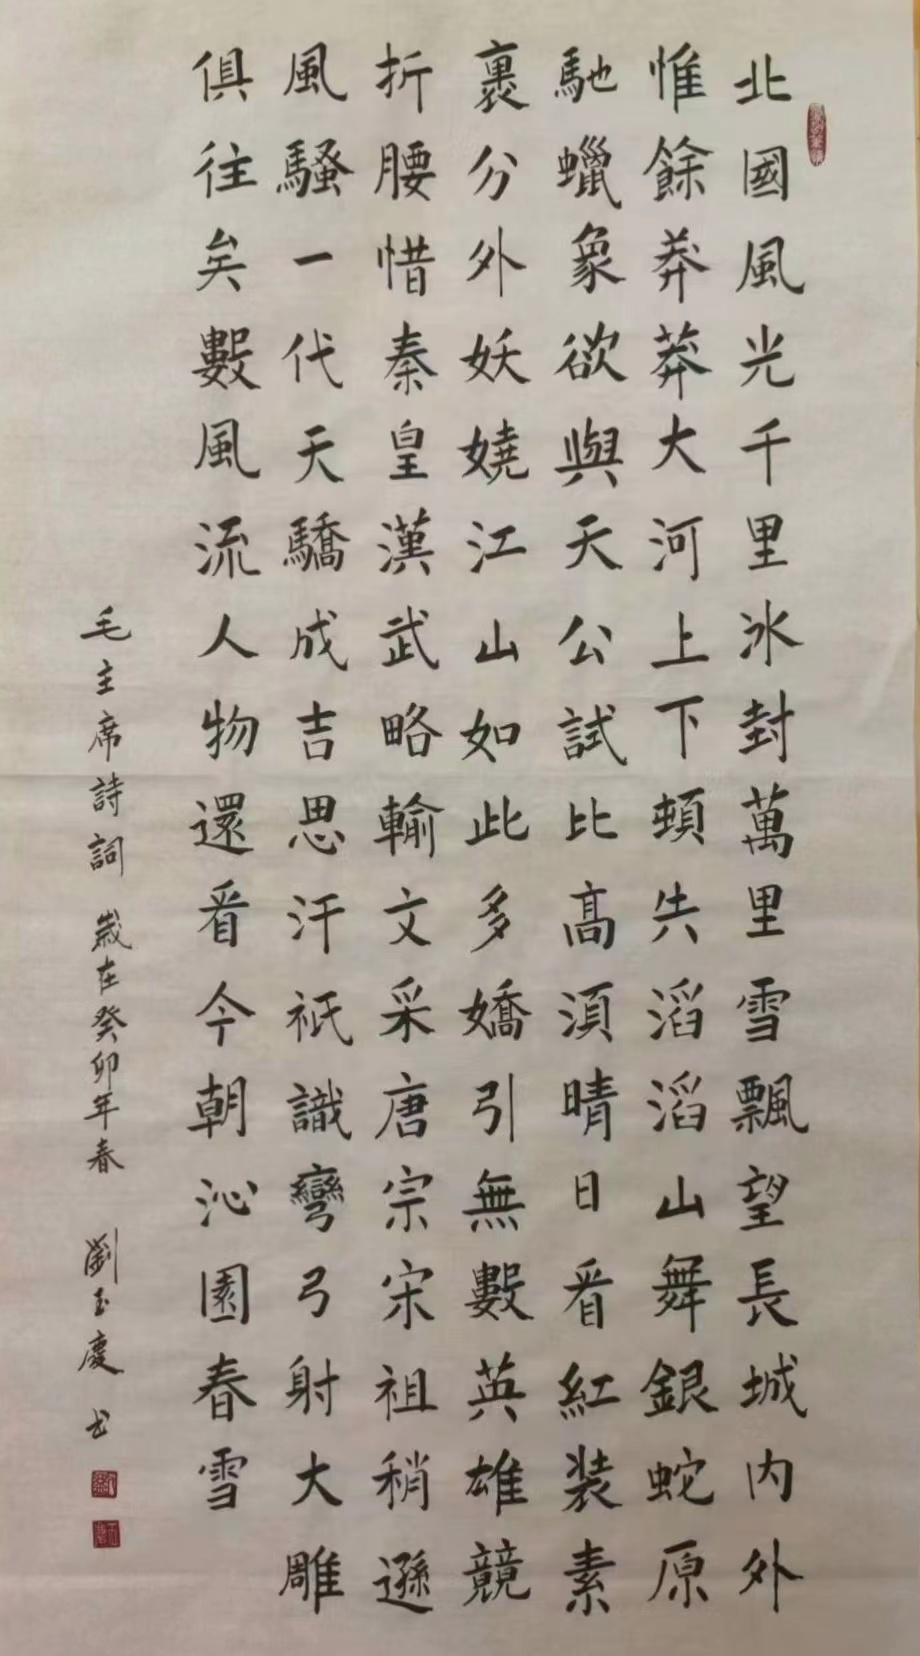 北國風光千里冰封萬里雪飄望長城內外
惟餘莽莽大河上下頓失滔滔山舞銀蛇原
馳蠟象欲與天公試比高須晴日看紅装素
裹分外妖嬈江山如此多嬌引無數英雄競
折腰惜秦皇漢武略輸文采唐宗宋祖稍遜
風騷一代天驕成吉思汗祇識彎弓射大雕
俱往矣數風流人物還看今朝沁園春雪
毛主席詩詞 嵗在癸卯年春 劉玉慶书